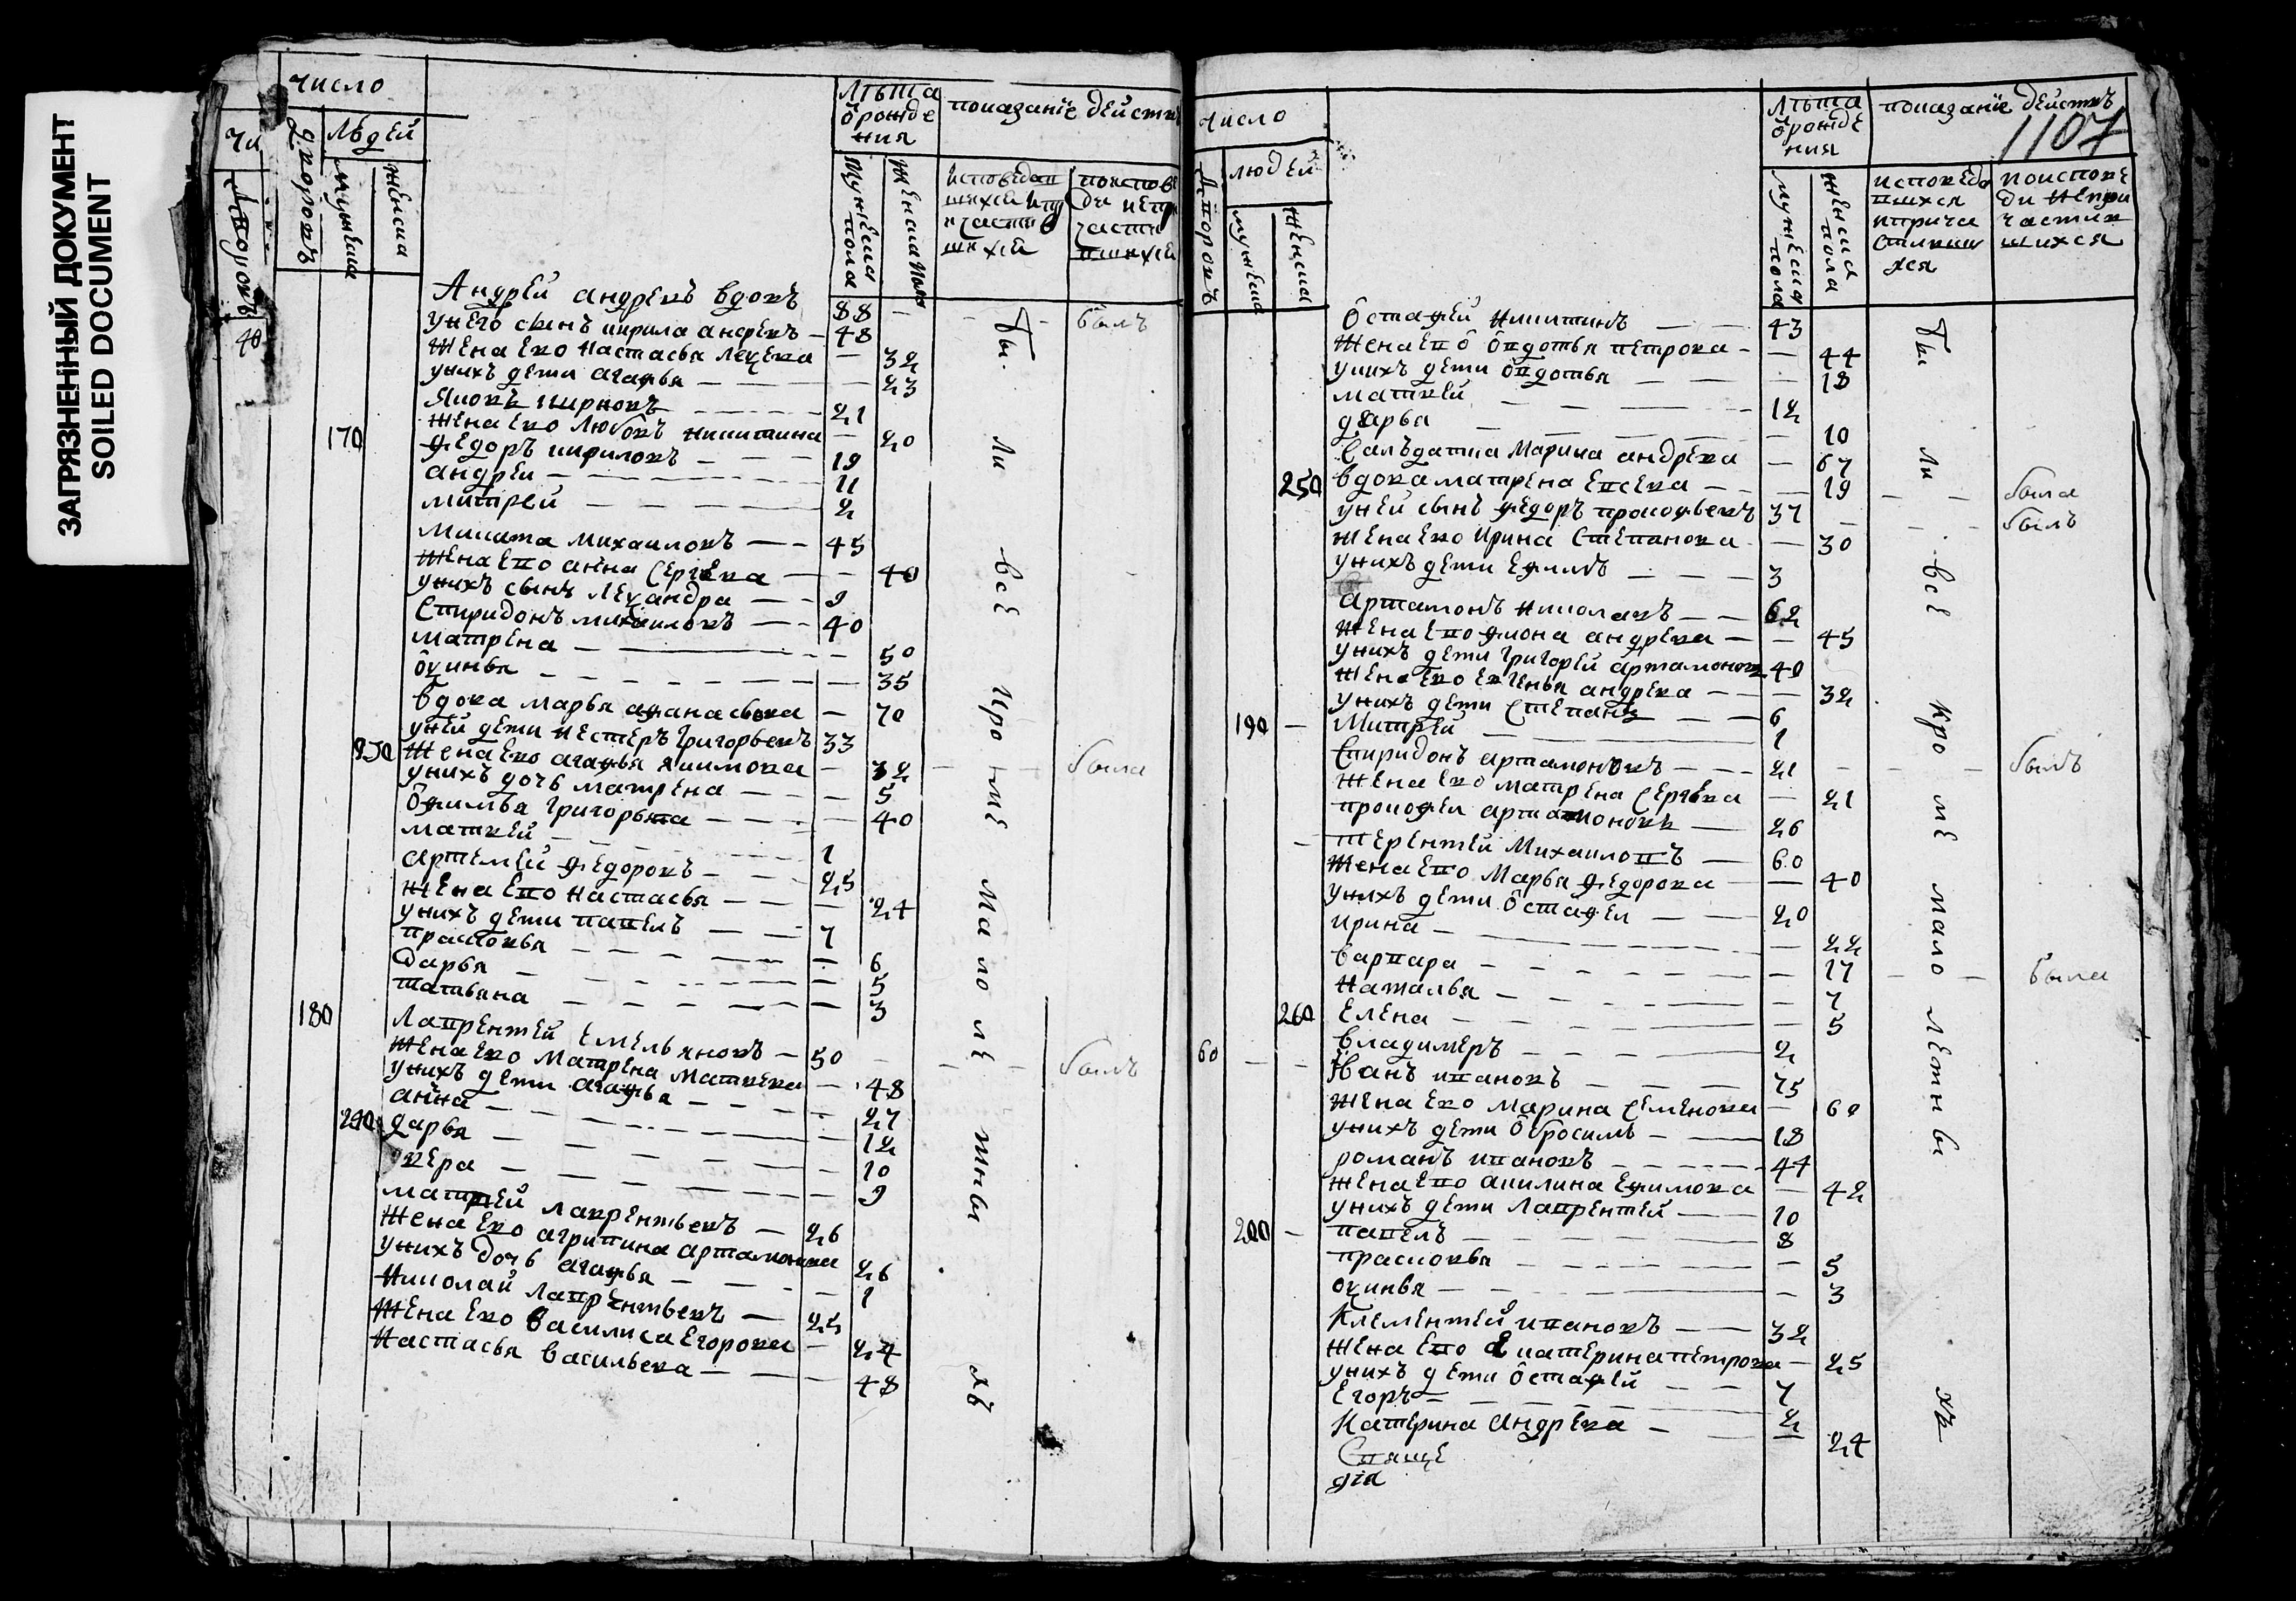 ЗАГРЯЗНЕННЫЙ ДОКУМЕНТ
SOILED DOCUMENT
число
людей
мужеска
женска
лѣта ѿ рожде
ния
показание дейстꙗ
мужеска пола
женска пола
40
Андрей андреевъ вдовъ 88 — былъ
унего сынъ кирила андреевъ — 48
жена ево настасья леѯева — 32
унихъ дети агафья — 23
Яковъ кириловъ — 21
170 жена ево любовь никитина — 20
федоръ кириловъ — 19
андрей — 11
митрей — 2
микита михаиловъ — 45
жена ево анна сергева — 40
унихъ сынъ леѯандра — 9
спиридонъ михаиловъ — 40
матрена — 50
ѡѯинья — 35
вдова марья афанасьева — 70
уней дети нестеръ григорьевъ 33
жена ево агафья якимова — 32 — была
унихъ дочь матрена — 5
ѡфимья григорьева — 40
матвей — 1
артемей федоровъ — 25
жена ево настасья — 24
унихъ дети павелъ — 7
прасковья — 6
дарья — 5
татьяна — 3
180 лаврентей емельяновъ — 50 — былъ
жена ево матрена матвеева — 48
унихъ дети агафья — 27
анна — 12
240 дарья — 10
вера — 9
матвей лаврентьевъ — 26
жена ево агрипина артамонова 26
унихъ дочь агафья — 1
николай лаврентьевъ — 25
жена ево василиса егорова — 24
настасья васильева — 48
бы
ли
все
кро
ме
мало
ле
тны
хъ
число
людей
мужеска
женска
лѣта ѿ рожде
ния
показание действъ
1107
мужеска пола
женска пола
исповеда
вшихся
иприча
стивши
хся
поиспове
ди непри
частив
шихся
ѡстафей никитинъ — 43
жена ево ѡвдотья петрова — 44
унихъ дети ѡвдотья — 18
матвей — 12
дарья — 10
салъдатка марина андрева — 67
250 вдова матрена евсева — 19 — была
уней сынъ федоръ прокофьевъ 37 — былъ
жена ево ирина степанова — 30
унихъ дети ефимъ — 3
артамонъ николаевъ — 62
жена ево фиона андрева — 45
унихъ дети григорей артамоновъ 40
жена ево евгенья андрева — 32
унихъ дети степанъ — 6
190 митрей — 1
спиридонъ артамоновъ — 21 — былъ
жена ево матрена сергева — 21
прокофей артамоновъ — 26
терентей михаиловъ — 60
жена ево марья федорова — 40
унихъ дети ѡстафей — 20
ирина — 22
варвара — 17 — была
наталья — 7
260 елена — 5
владимеръ — 2
60 иванъ ивановъ — 75
жена ево марина семенова — 60
унихъ дети ѡбросимъ — 18
романъ ивановъ — 44
жена ево акилина ефимова — 42
унихъ дети лаврентей — 10
200 павелъ — 8
прасковья — 5
оѯинья — 3
климентей ивановъ — 32
жена ево екатерина петрова — 25
унихъ дети ѡстафей — 7
егоръ — 2
катерина андрева — 24
священо
бы
ли
все
кро
ме
мало
летны
хъ